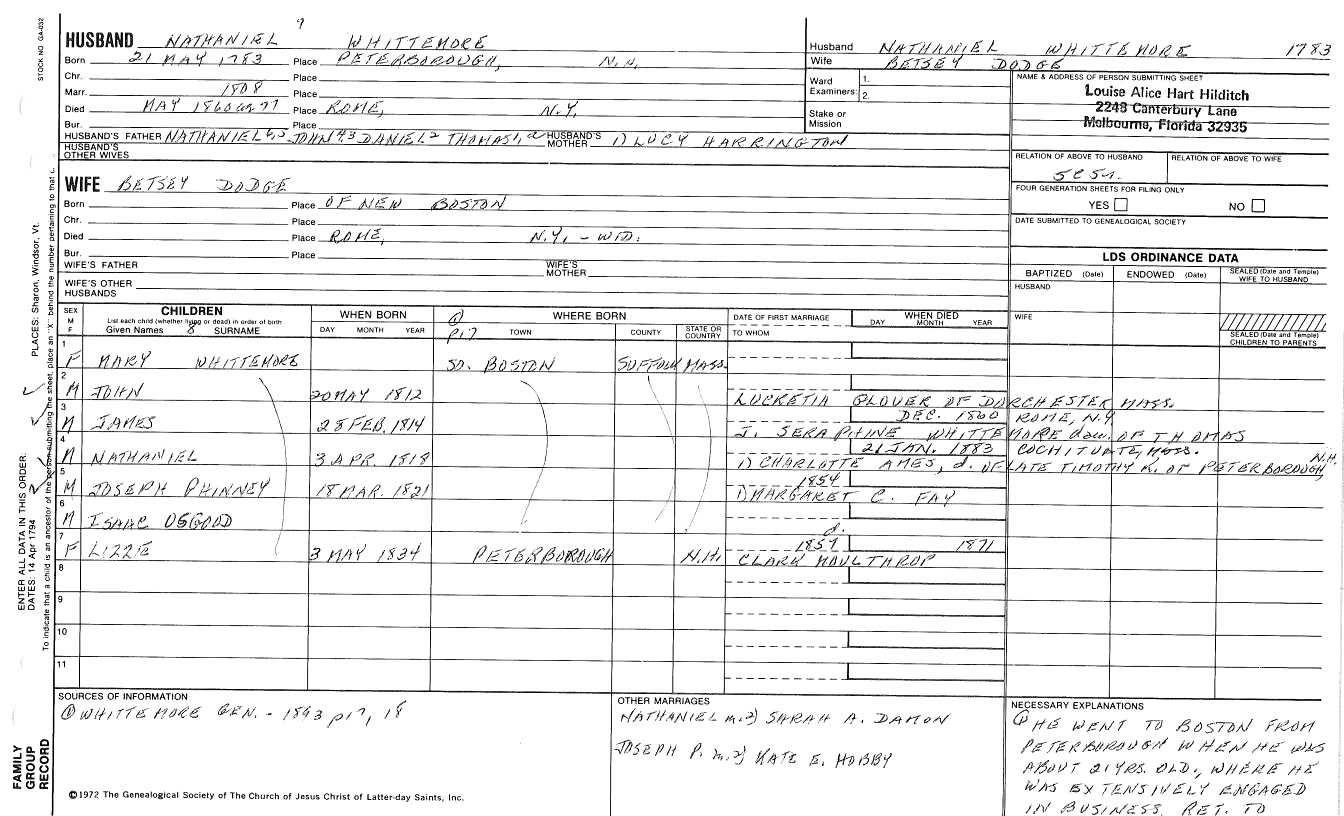 9
STOCK NO. GA-032
HUSBAND NATHANIEL WHITTEMORE
Born 21 MAY 1783 Place PETERBOROUGH, N.H.
Chr. Place
Marr. 1808 Place
Died MAY 1860 ag. 77 Place ROME, N.Y.
Bur. Place
HUSBAND'S FATHER NATHANIEL JOHN DANIEL THOMAS HUSBAND'S MOTHER 1) LUCY HARRINGTON
HUSBAND'S OTHER WIVES
Husband NATHANIEL WHITTEMORE 1783
Wife BETSEY DODGE
Ward Examiners: 1.
2.
Stake or Mission
NAME & ADDRESS OF PERSON SUBMITTING SHEET
Louise Alice Hart Hilditch
2248 Canterbury Lane
Melbourne, Florida 32935
RELATION OF ABOVE TO HUSBAND RELATION OF ABOVE TO WIFE
FOUR GENERATION SHEETS FOR FILING ONLY
YES NO
DATE SUBMITTED TO GENEALOGICAL SOCIETY
WIFE BETSEY DODGE
Born Place OF NEW BOSTON
Chr. Place
Died Place ROME, N.Y. - WID.
Bur. Place
WIFE'S FATHER WIFE'S MOTHER
WIFE'S OTHER HUSBANDS
LDS ORDINANCE DATA
BAPTIZED (Date) ENDOWED (Date) SEALED (Date and Temple) WIFE TO HUSBAND
HUSBAND
WIFE
SEALED (Date and Temple) CHILDREN TO PARENTS
SEX M F
CHILDREN
List each child (whether living or dead) in order of birth
Given Names 8 SURNAME
WHEN BORN
DAY MONTH YEAR
① p17
WHERE BORN
TOWN COUNTY STATE OR COUNTRY
DATE OF FIRST MARRIAGE
TO WHOM
WHEN DIED
DAY MONTH YEAR
1 F MARY WHITTEMORE SO. BOSTON SUFFOLK MASS.
2 M JOHN 20 MAY 1812 LUCRETIA GLOVER OF DORCHESTER, MASS.
DEC. 1860 ROME, N.Y.
3 M JAMES 28 FEB. 1814 J. SERAPHINE WHITTEMORE dau. OF THOMAS
21 JAN. 1883 COCHITUATE, MASS.
4 M NATHANIEL 3 APR. 1818 1) CHARLOTTE AMES, d. OF LATE TIMOTHY K. OF PETERBOROUGH, N.H.
1854
5 M JOSEPH PHINNEY 18 MAR. 1821 1) MARGARET C. FAY
6 M ISAAC OSGOOD d.
1854 1871
7 F LIZZIE 3 MAY 1834 PETERBOROUGH N.H. CLARK MOULTHROP
8
9
10
11
SOURCES OF INFORMATION
① WHITTEMORE GEN. - 1893 p17, 18
OTHER MARRIAGES
NATHANIEL m. 2) SARAH A. DAMON
JOSEPH P. m. 2) KATE E. HOBBY
NECESSARY EXPLANATIONS
① HE WENT TO BOSTON FROM
PETERBOROUGH WHEN HE WAS
ABOUT 21 YRS. OLD., WHERE HE
WAS EXTENSIVELY ENGAGED
IN BUSINESS. RET. TO
©1972 The Genealogical Society of The Church of Jesus Christ of Latter-day Saints, Inc.
FAMILY GROUP RECORD
ENTER ALL DATA IN THIS ORDER.
DATES: 14 Apr 1794
PLACES: Sharon, Windsor, Vt.
To indicate that a child is an ancestor of the person submitting the sheet, place an "X" behind the number pertaining to that c.